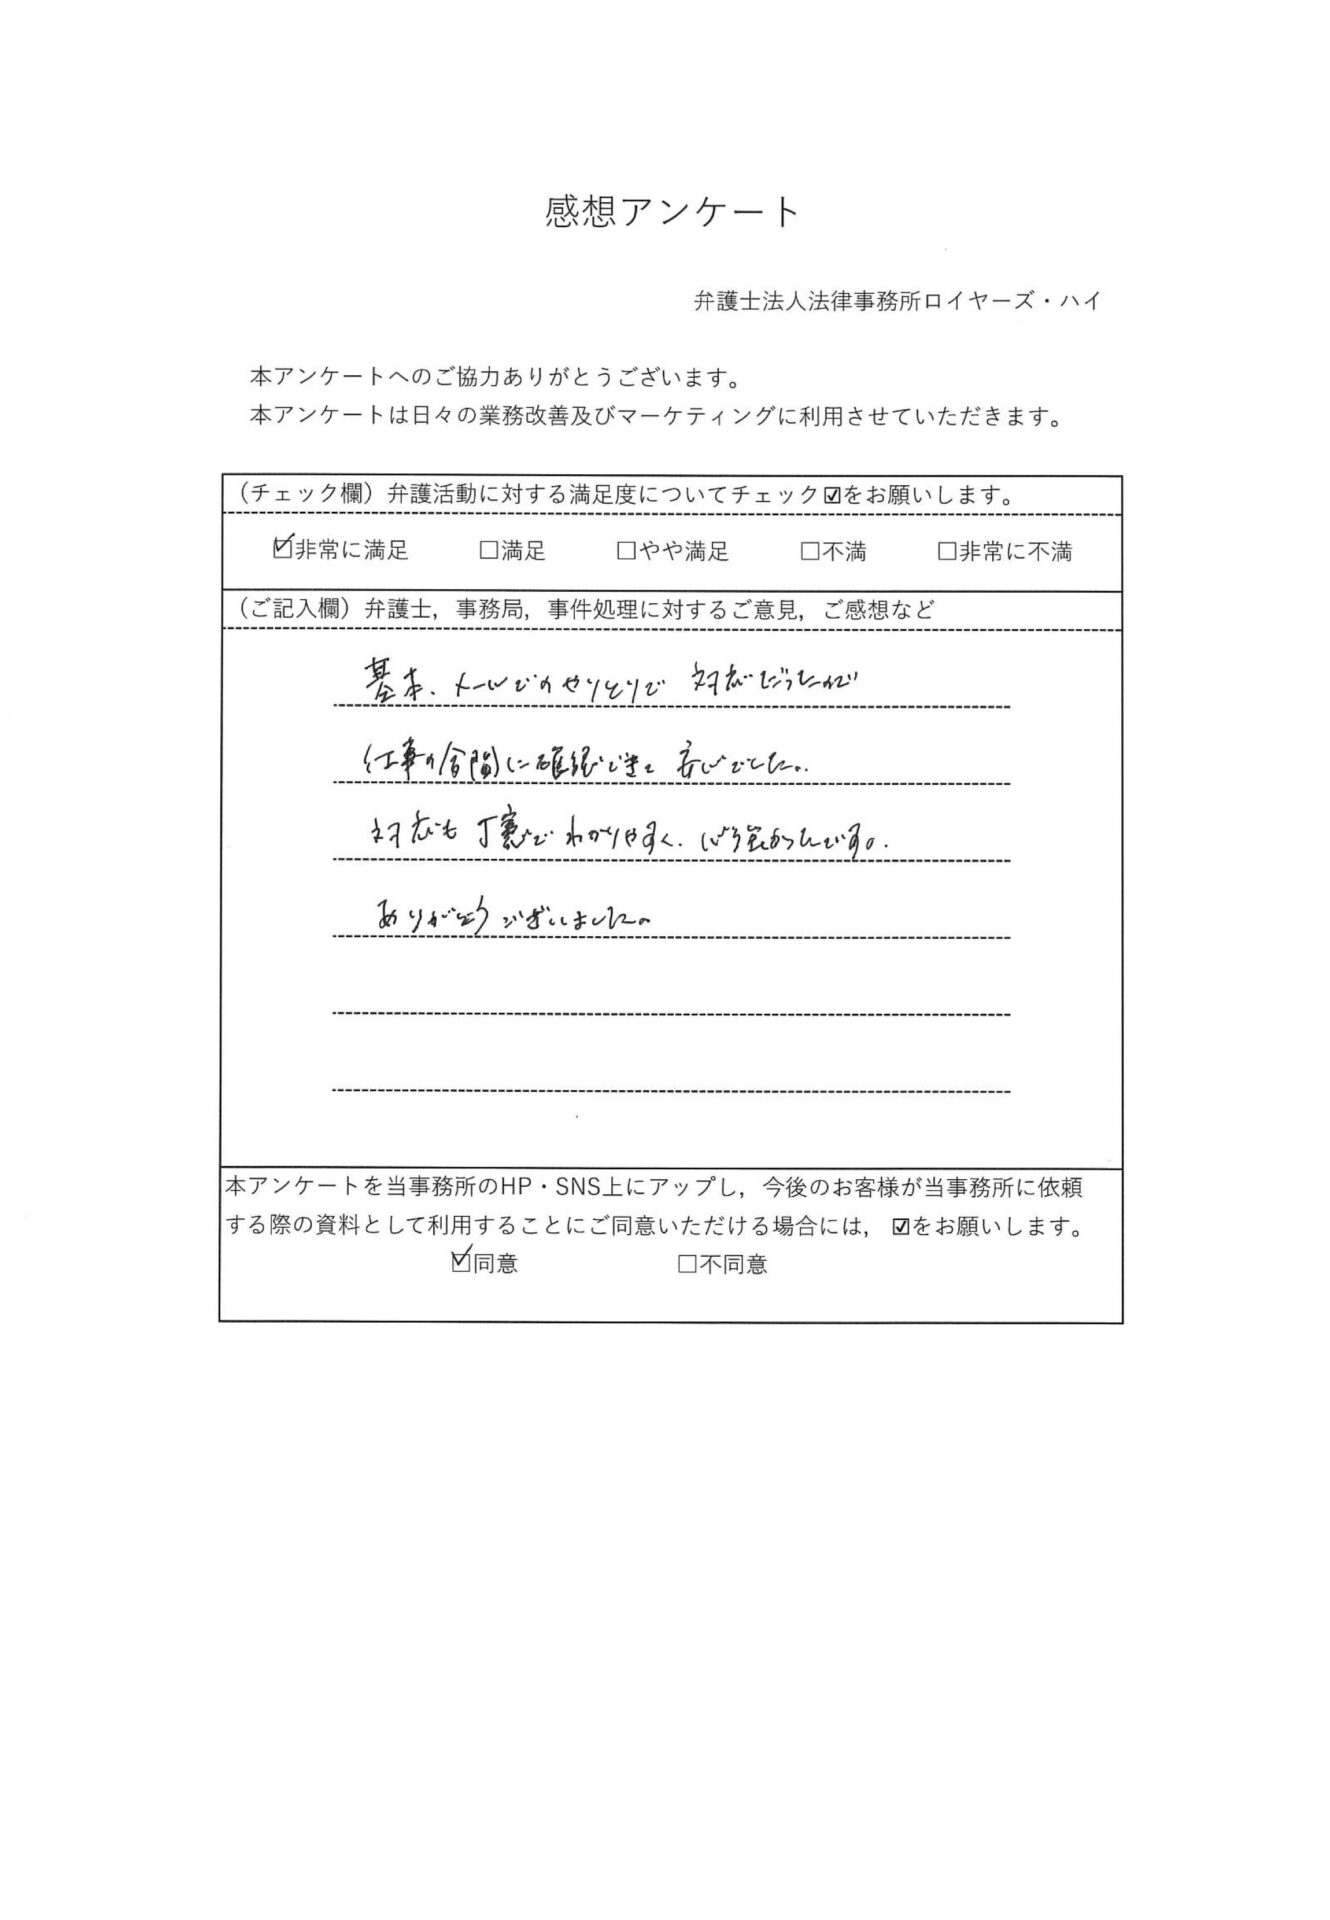 感想アンケート
弁護士法人法律事務所ロイヤーズ・ハイ
本アンケートへのご協力ありがとうございます。
本アンケートは日々の業務改善及びマーケティングに利用させていただきます。
（チェック欄）弁護活動に対する満足度についてチェック☑をお願いします。
☑非常に満足 □満足 □やや満足 □不満 □非常に不満
（ご記入欄）弁護士，事務局，事件処理に対するご意見，ご感想など
基本、メールでのやりとりで 対応だったので
仕事の合間に確認できて 安心でした。
対応も 丁寧で わかりやすく、心強かったです。
ありがとうございました。
本アンケートを当事務所のHP・SNS上にアップし，今後のお客様が当事務所に依頼
する際の資料として利用することにご同意いただける場合には，☑をお願いします。
☑同意 □不同意